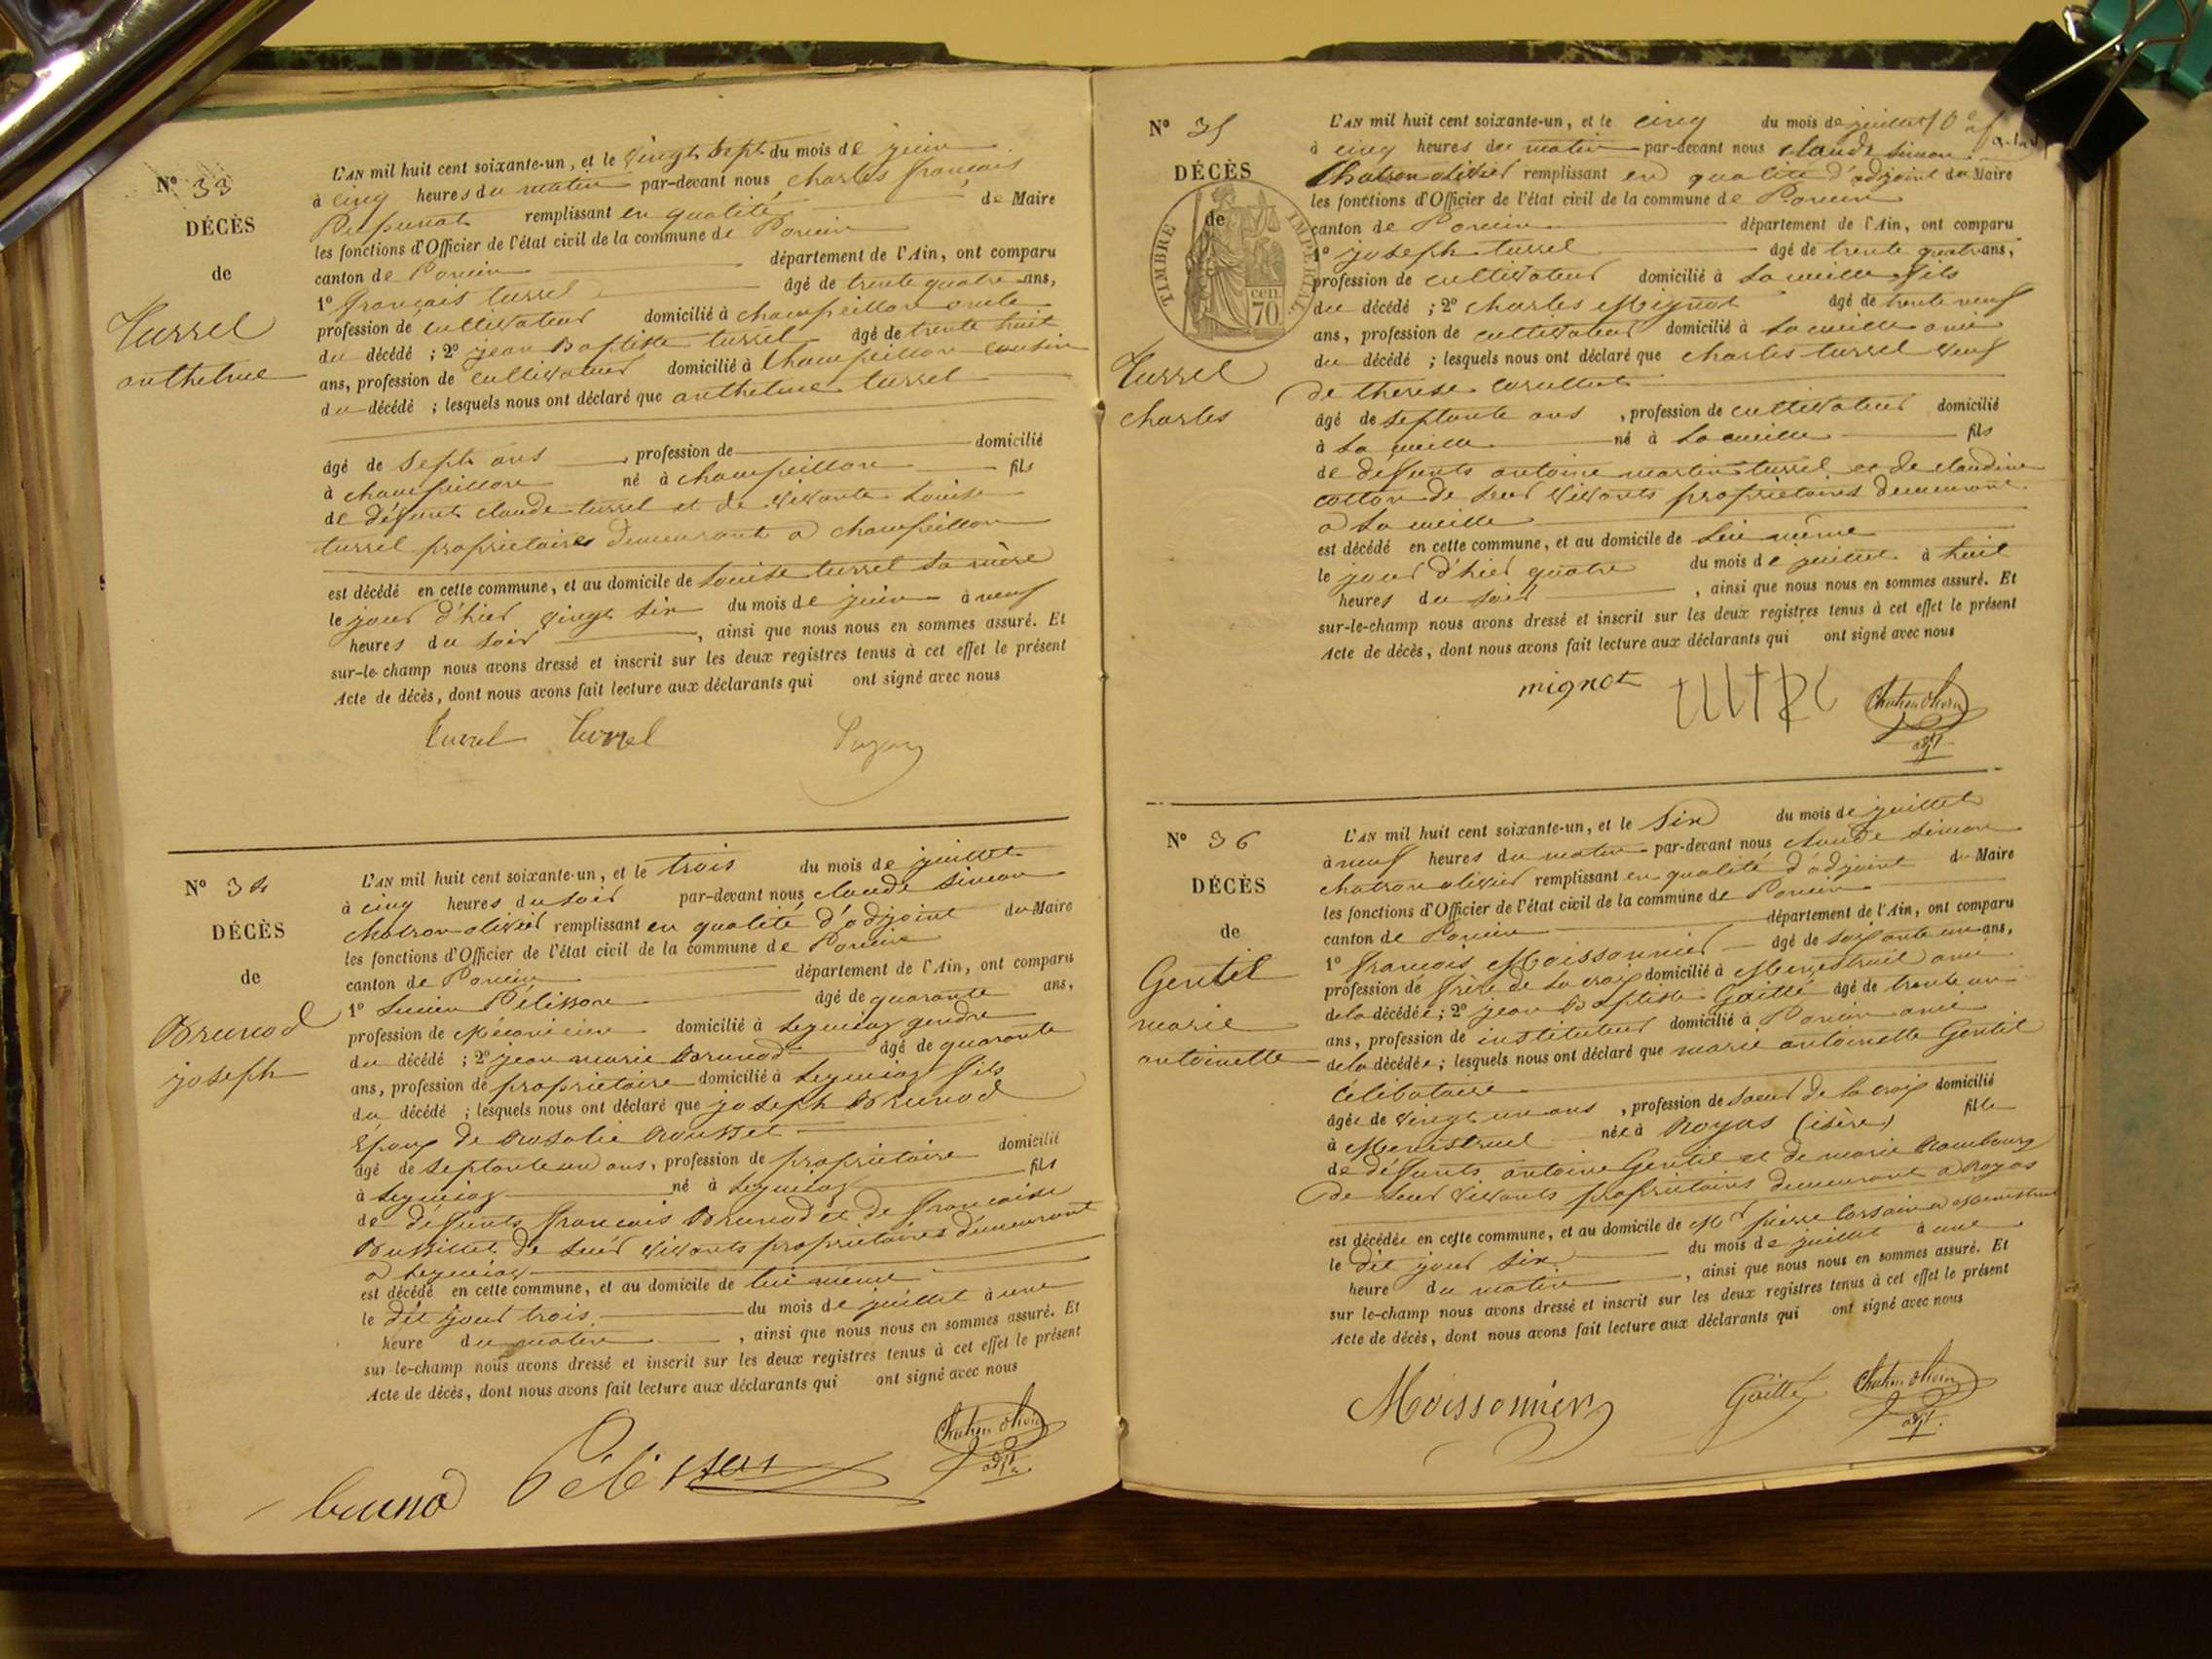 N° 33
DÉCÈS
de
Turrel
anthelme
L'AN mil huit cent soixante-un, et le vingt sept du mois de juin
à cinq heures du matin par-devant nous Charles françois
remplissant en qualité de Maire
les fonctions d'Officier de l'état civil de la commune de Poncin
canton de Poncin département de l'Ain, ont comparu
1° françois turrel âgé de trente quatre ans,
profession de cultivateur domicilié à champeillon oncle
du décédé ; 2° jean Baptiste turrel âgé de trente huit
ans, profession de cultivateur domicilié à Champeillon cousin
du décédé ; lesquels nous ont déclaré que anthelme turrel
âgé de sept ans , profession de domicilié
à champeillon né à champeillon fils
de défunt claude turrel et de vivante Louise
turrel propriétaires demeurant a champeillon
est décédé en cette commune, et au domicile de Louise turrel sa mère
le jour d'hier vingt six du mois de juin à neuf
heures du soir , ainsi que nous nous en sommes assuré. Et
sur-le-champ nous avons dressé et inscrit sur les deux registres tenus à cet effet le présent
Acte de décès, dont nous avons fait lecture aux déclarants qui ont signé avec nous
Turrel Turrel
N° 34
DÉCÈS
de
Brunod
joseph
L'AN mil huit cent soixante-un, et le trois du mois de juillet
à cinq heures du soir par-devant nous claude simon
chatron olivier remplissant en qualité d'adjoint du Maire
les fonctions d'Officier de l'état civil de la commune de Poncin
canton de Poncin département de l'Ain, ont comparu
1° Lucien Pélisson âgé de quarante ans,
profession de Mécanicien domicilié à Leymiat gendre
du décédé ; 2° jean marie Brunod âgé de quarante
ans, profession de propriétaire domicilié à Leymiat fils
du décédé ; lesquels nous ont déclaré que joseph Brunod
Epoux de Rosalie Rousset
âgé de septante un ans, profession de propriétaire domicilié
à Leymiat né à Leymiat fils
de défunts françois Brunod et de françoise
de leur vivants propriétaires demeurant
a Leymiat
est décédé en cette commune, et au domicile de lui même
le dit jour trois du mois de juillet à une
heure du matin , ainsi que nous nous en sommes assuré. Et
sur le-champ nous avons dressé et inscrit sur les deux registres tenus à cet effet le présent
Acte de décès, dont nous avons fait lecture aux déclarants qui ont signé avec nous
brunod Pélisson Chatron Olivier
adjt
N° 35
DÉCÈS
de
TIMBRE IMPÉRIAL
70 cen
Turrel
charles
L'AN mil huit cent soixante-un, et le cinq du mois de juillet
à cinq heures du matin par-devant nous claude simon
Chatron olivier remplissant en qualité d'adjoint du Maire
les fonctions d'Officier de l'état civil de la commune de Poncin
canton de Poncin département de l'Ain, ont comparu
1° joseph turrel âgé de trente quatre ans,
profession de cultivateur domicilié à La cueille fils
du décédé ; 2° charles Mignot âgé de trente neuf
ans, profession de cultivateur domicilié à La cueille ami
du décédé ; lesquels nous ont déclaré que charles turrel veuf
de therese
âgé de septante ans , profession de cultivateur domicilié
à La cueille né à La cueille fils
de défunts antoine martin turrel et de claudine
cotton de leur vivants propriétaires demeurant
a La cueille
est décédé en cette commune, et au domicile de lui même
le jour d'hier quatre du mois de juillet à huit
heures du soir , ainsi que nous nous en sommes assuré. Et
sur-le-champ nous avons dressé et inscrit sur les deux registres tenus à cet effet le présent
Acte de décès, dont nous avons fait lecture aux déclarants qui ont signé avec nous
mignot Chatron Olivier
adjt
N° 36
DÉCÈS
de
Gentil
marie
antoinette
L'AN mil huit cent soixante-un, et le Six du mois de juillet
à neuf heures du matin par-devant nous claude simon
chatron olivier remplissant en qualité d'adjoint du Maire
les fonctions d'Officier de l'état civil de la commune de Poncin
canton de Poncin département de l'Ain, ont comparu
1° françois Moissonnier âgé de soixante un ans,
profession de frère de La croix domicilié à Menestruel ami
de la décédée ; 2° jean Baptiste Gaillé âgé de trente un
ans, profession de instituteur domicilié à Poncin ami
de la décédée ; lesquels nous ont déclaré que marie antoinette Gentil
célibataire
âgée de vingt un ans , profession de soeur de la croix domicilié
à Menestruel née à Royas (isère) fille
de défunts antoine Gentil et de marie Rambourg
de leur vivants propriétaires demeurant a Royas
est décédée en cette commune, et au domicile de Mr pierre a Menestruel
le dit jour six du mois de juillet à une
heure du matin , ainsi que nous nous en sommes assuré. Et
sur le-champ nous avons dressé et inscrit sur les deux registres tenus à cet effet le présent
Acte de décès, dont nous avons fait lecture aux déclarants qui ont signé avec nous
Moissonnier Gaillé Chatron Olivier
adjt